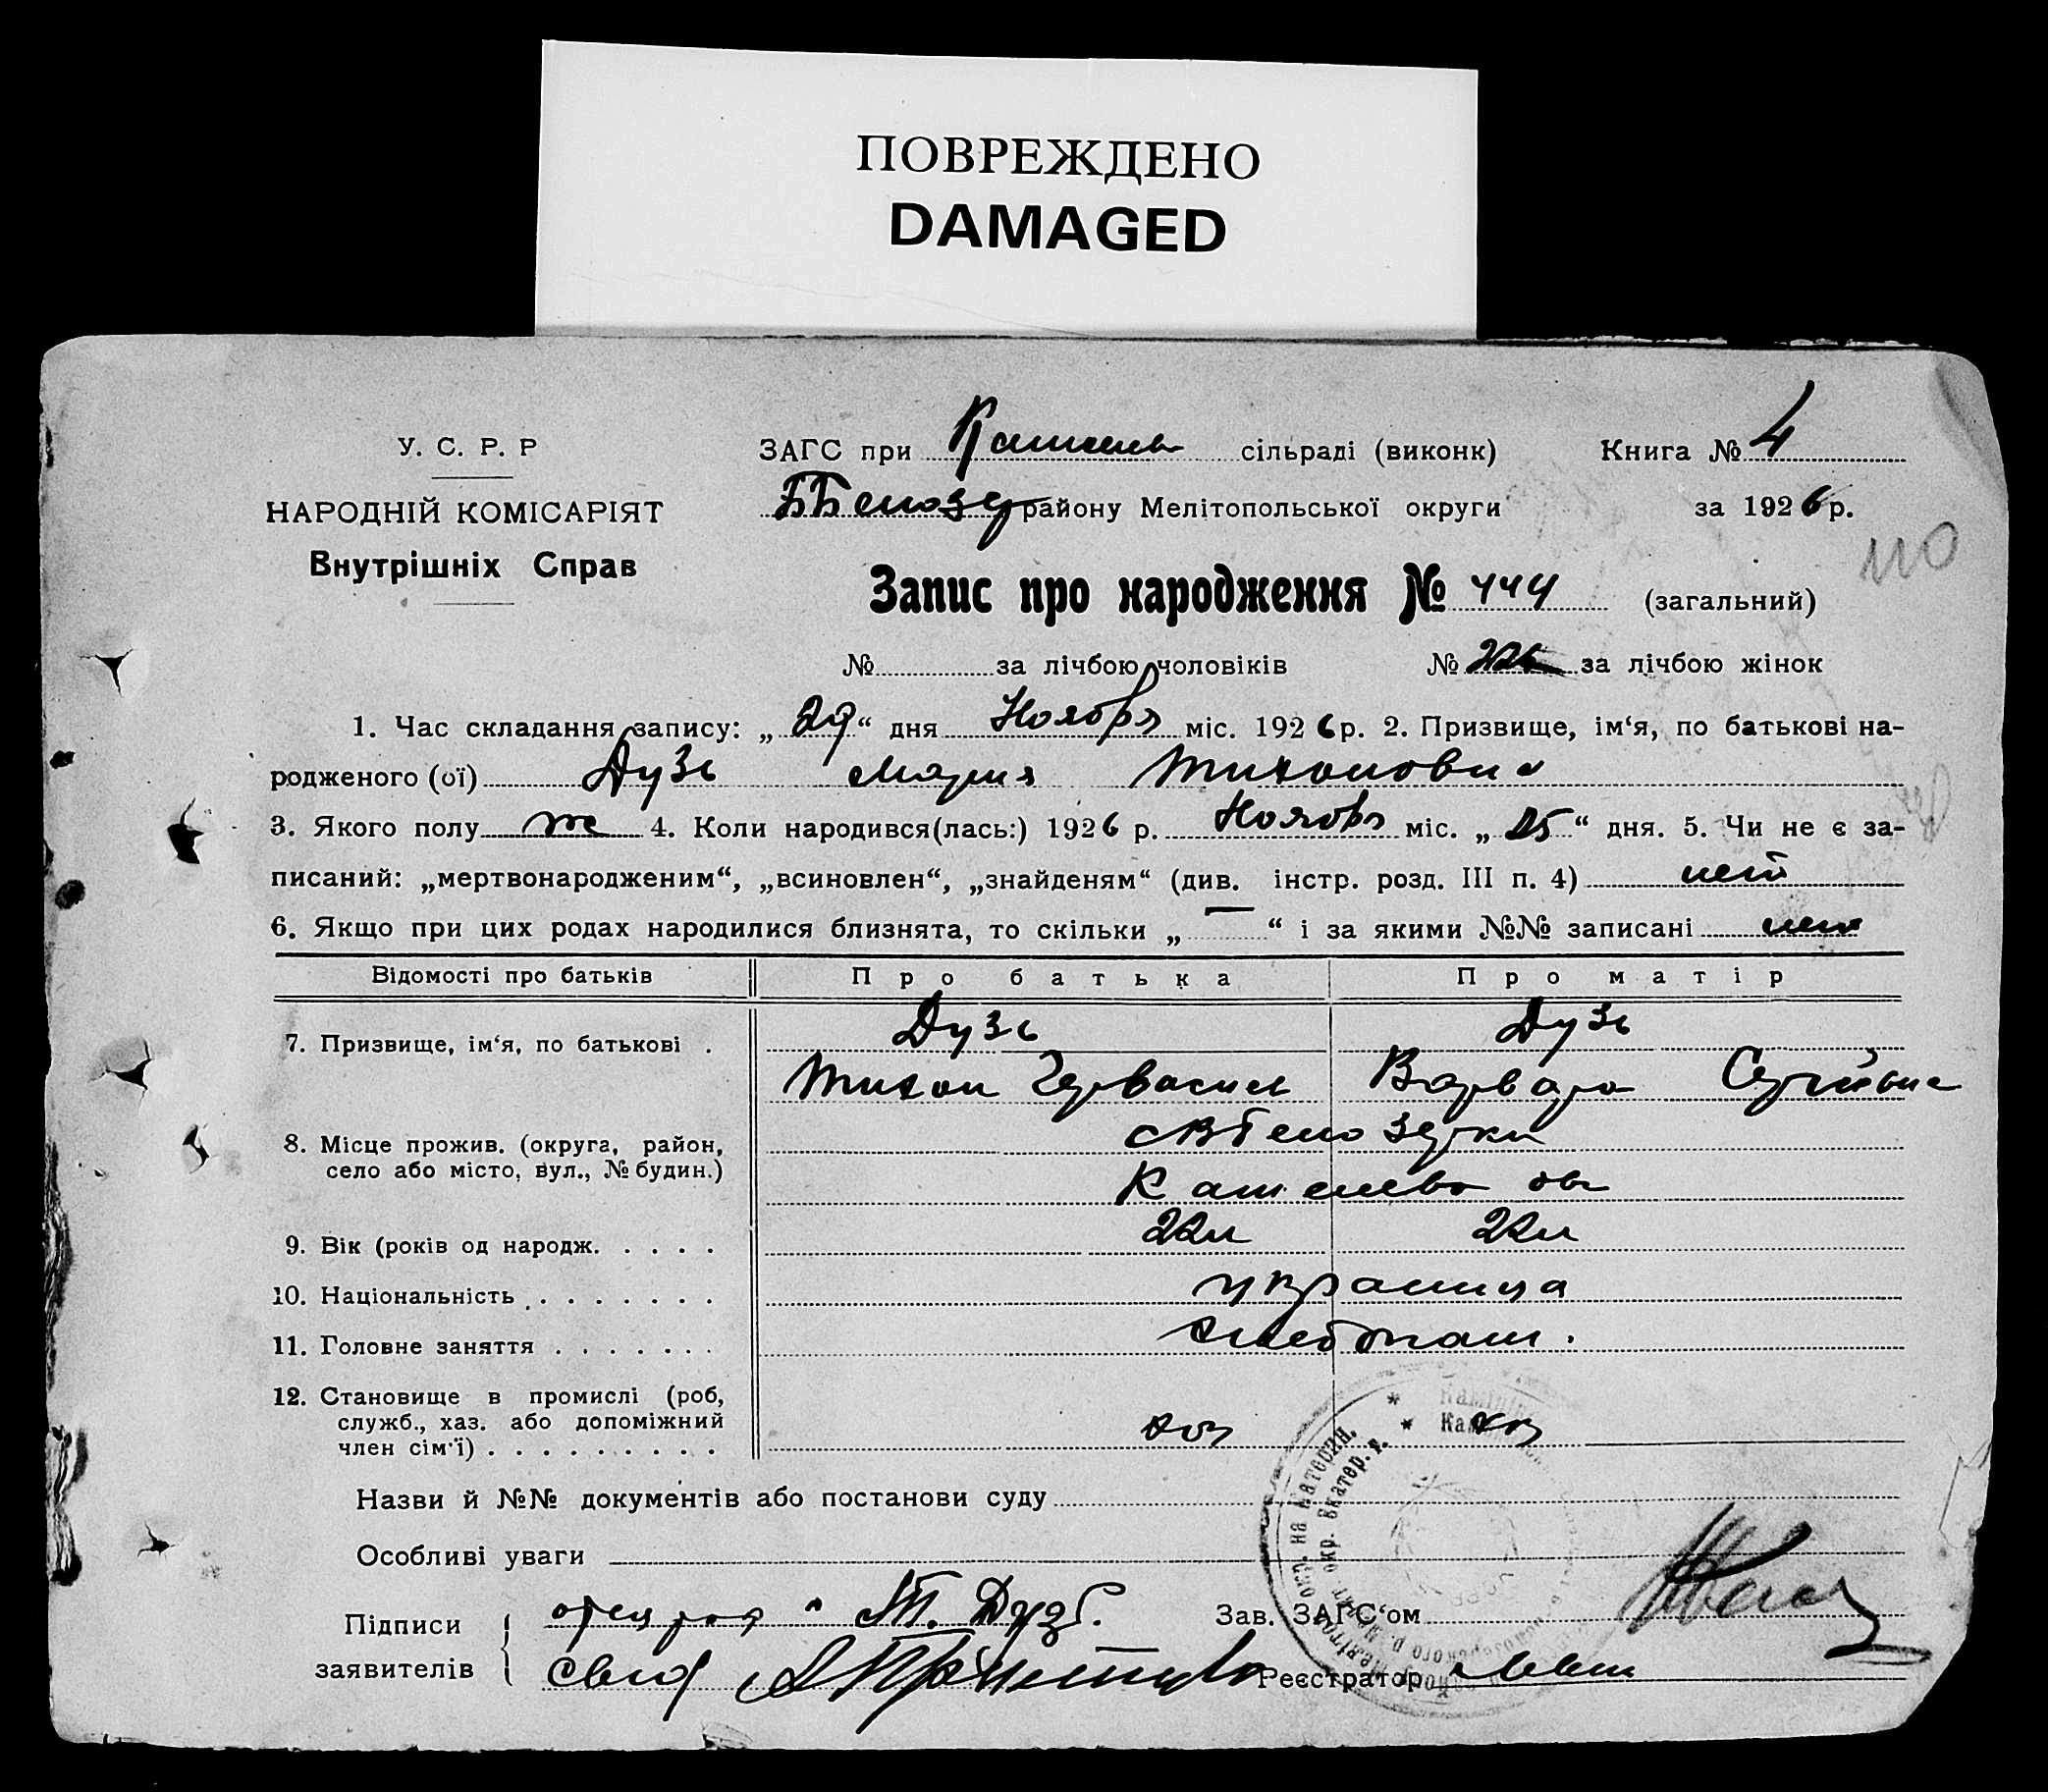 ПОВРЕЖДЕНО
DAMAGED
У. С. Р. Р
НАРОДНІЙ КОМІСАРІЯТ
Внутрішніх Справ
ЗАГС при сільраді (виконк)
району Мелітопольської округи
Книга № 4
за 1926 р.
110
Запис про народження № 444 (загальний)
№ за лічбою чоловіків № 226 за лічбою жінок
1. Час складання запису: „ 29 “ дня Ноября міс. 1926 р. 2. Призвище, ім‘я, по батькові на-
родженого (ої) Дузь Мария Тихоновна
3. Якого полу же 4. Коли народився(лась:) 1926 р. Ноября міс. „ 25 “ дня. 5. Чи не є за-
писаний: „мертвонародженим“, „всиновлен“, „знайденям“ (див. інстр. розд. III п. 4) нет
6. Якщо при цих родах народилися близнята, то скільки „ — “ і за якими №№ записані нет
Відомості про батьків Про батька Про матір
7. Призвище, ім‘я, по батькові . Дузь Дузь
Тихон Варвара
8. Місце прожив. (округа, район,
село або місто, вул., № будин.)
9. Вік (років од народж. . . . . 22л 22л
10. Національність . . . . . . . украинца
11. Головне заняття . . . . . . . хлебопаш.
12. Становище в промислі (роб,
служб., хаз. або допоміжний
член сім‘ї) . . . . . . . . . хоз хоз
Назви й №№ документів або постанови суду
Особливі уваги
Підписи
заявителів
отец Т. Дузь.
свид
Зав. ЗАГС‘ом
Реєстратор